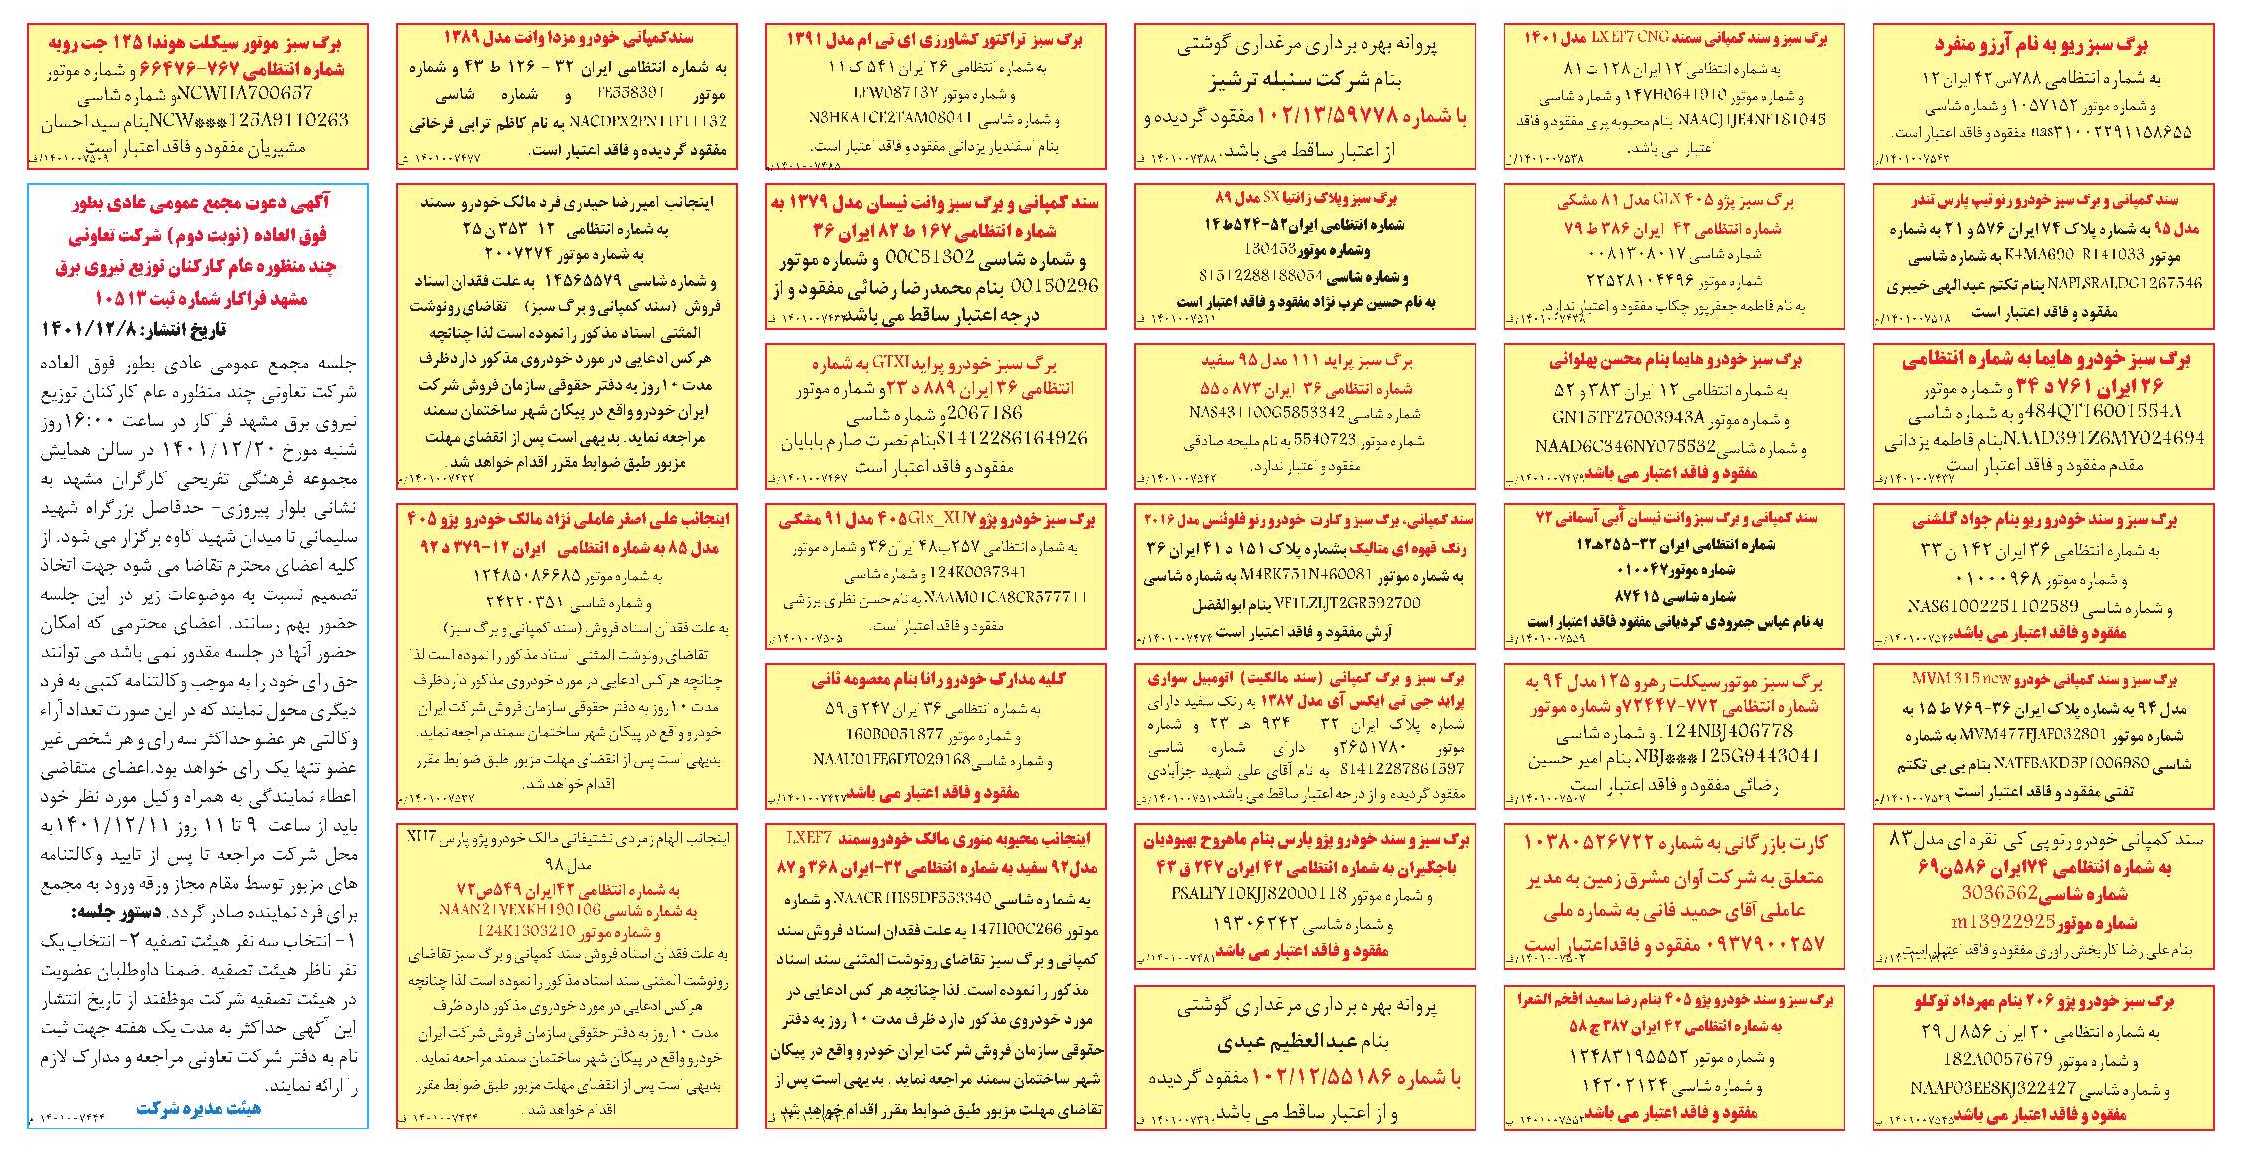 برگ سبز ریو به نام آرزو منفرد
به شماره انتظامی ۷۸۸س۴۲ ایران ۱۲
و شماره موتور ۱۰۵۷۱۵۲ و شماره شاسی
nas۳۱۰۰۲۲۹۱۱۵۸۶۵۵ مفقود و فاقد اعتبار است.
سند کمپانی و برگ سبز خودرو رنو تیپ پارس تندر
مدل ۹۵ به شماره پلاک ۷۴ ایران ۵۷۶ و ۲۱ به شماره
موتور K4MA690 R141033 به شماره شاسی
NAPLSRALDG1267546 بنام تکتم عبدالهی خیبری
مفقود و فاقد اعتبار است
برگ سبز خودرو هایما به شماره انتظامی
۲۶ ایران ۷۶۱ د ۳۴ و شماره موتور
484QT16001554A و به شماره شاسی
NAAD391Z6MY024694 بنام فاطمه یزدانی
مقدم مفقود و فاقد اعتبار است
برگ سبز و سند خودرو ریو بنام جواد گلشنی
به شماره انتظامی ۳۶ ایران ۱۴۲ ن ۳۳
و شماره موتور ۰۱۰۰۰۹۶۸
و شماره شاسی NAS61002251102589
مفقود و فاقد اعتبار می باشد
برگ سبز و سند کمپانی خودرو MVM 315 new
مدل ۹۴ به شماره پلاک ایران ۳۶-۷۶۹ ط ۱۵ به
شماره موتور MVM477FJAF032801 به شماره
شاسی NATFBAKD5P1006980 بنام بی بی تکتم
تفتی مفقود و فاقد اعتبار است
سند کمپانی خودرو رنو پی کی نقره ای مدل ۸۳
به شماره انتظامی ۷۴ایران ۵۸۶ن۶۹
شماره شاسی3036562
شماره موتورm13922925
بنام علی رضا کاربخش راوری مفقود و فاقد اعتبار است
برگ سبز خودرو پژو ۲۰۶ بنام مهرداد توکلو
به شماره انتظامی ۲۰ ایران ۸۵۶ ل ۲۹
و شماره موتور 182A0057679
و شماره شاسی NAAP03EE8KJ322427
مفقود و فاقد اعتبار می باشد
برگ سبز و سند کمپانی سمند LX EF7 CNG مدل ۱۴۰۱
به شماره انتظامی ۱۲ ایران ۱۲۸ ت ۸۱
و شماره موتور ۱۴۷H0641910 و شماره شاسی
NAACJ1JE4NF181045 بنام محبوبه پری مفقود و فاقد
اعتبار می باشد.
برگ سبز پژو ۴۰۵ GLX مدل ۸۱ مشکی
شماره انتظامی ۴۲ ایران ۳۸۶ ط ۷۹
شماره شاسی ۰۰۸۱۳۰۸۰۱۷
شماره موتور ۲۲۵۲۸۱۰۴۴۹۶
به نام فاطمه جعفرپور چکاب مفقود و اعتبار ندارد.
برگ سبز خودرو هایما بنام محسن پهلوانی
به شماره انتظامی ۱۲ ایران ۳۸۳ و ۵۲
و شماره موتور GN15TF27003943A
و شماره شاسی NAAD6C346NY075532
مفقود و فاقد اعتبار می باشد
سند کمپانی و برگ سبز وانت نیسان آبی آسمانی ۷۲
شماره انتظامی ایران ۳۲-۲۵۵هـ۱۲
شماره موتور۰۱۰۰۴۷
شماره شاسی ۸۷۴۱۵
به نام عباس جمرودی کردیانی مفقود فاقد اعتبار است
برگ سبز موتورسیکلت رهرو ۱۲۵ مدل ۹۴ به
شماره انتظامی ۷۷۲-۷۲۴۴۷ و شماره موتور
124NBJ406778 و شماره شاسی
NBJ***125G9443041 بنام امیر حسین
رضائی مفقود و فاقد اعتبار است
کارت بازرگانی به شماره ۱۰۳۸۰۵۲۶۷۲۲
متعلق به شرکت آوان مشرق زمین به مدیر
عاملی آقای حمید فانی به شماره ملی
۰۹۳۷۹۰۰۲۵۷ مفقود و فاقداعتبار است
برگ سبز و سند خودرو پژو ۴۰۵ بنام رضا سعید افخم الشعرا
به شماره انتظامی ۴۲ ایران ۳۸۷ ج ۵۸
و شماره موتور ۱۲۴۸۳۱۹۵۵۵۲
و شماره شاسی ۱۴۲۰۲۱۲۴
مفقود و فاقد اعتبار می باشد
پروانه بهره برداری مرغداری گوشتی
بنام شرکت سنبله ترشیز
با شماره ۱۰۲/۱۳/۵۹۷۷۸ مفقود گردیده و
از اعتبار ساقط می باشد.
برگ سبز وپلاک زانتیا SX مدل ۸۹
شماره انتظامی ایران۵۲-۵۲۴ط۱۴
وشماره موتور130453
و شماره شاسی S1512288188054
به نام حسین عرب نژاد مفقود و فاقد اعتبار است
برگ سبز پراید ۱۱۱ مدل ۹۵ سفید
شماره انتظامی ۳۶ ایران ۸۷۳ ه ۵۵
شماره شاسی NAS431100G5853342
شماره موتور 5540723 به نام ملیحه صادقی
مفقود و اعتبار ندارد.
سند کمپانی، برگ سبز و کارت خودرو رنو فلوئنس مدل ۲۰۱۶
رنگ قهوه ای متالیک بشماره پلاک ۱۵۱ د ۴۱ ایران ۳۶
به شماره موتور M4RK751N460081 به شماره شاسی
VF1LZLJT2GR592700 بنام ابوالفضل
آرش مفقود و فاقد اعتبار است
برگ سبز و برگ کمپانی (سند مالکیت) اتومبیل سواری
پراید جی تی ایکس آی مدل ۱۳۸۷ به رنگ سفید دارای
شماره پلاک ایران ۳۲ ۹۳۴ هـ ۲۳ و شماره
موتور ۲۶۵۱۷۸۰ و دارای شماره شاسی
S1412287861597 به نام آقای علی شهید جزآبادی
مفقود گردیده و از درجه اعتبار ساقط می باشد
برگ سبز و سند خودرو پژو پارس بنام ماهروح بهبودیان
باجگیران به شماره انتظامی ۴۲ ایران ۲۴۷ ق ۴۳
و شماره موتور PSALFY10KJJ82000118
و شماره شاسی ۱۹۳۰۶۲۴۲
مفقود و فاقد اعتبار می باشد
پروانه بهره برداری مرغداری گوشتی
بنام عبدالعظیم عبدی
با شماره ۱۰۲/۱۲/۵۵۱۸۶ مفقود گردیده
و از اعتبار ساقط می باشد.
برگ سبز تراکتور کشاورزی ای تی ام مدل ۱۳۹۱
به شماره انتظامی ۲۶ ایران ۵۴۱ ک ۱۱
و شماره موتور LFW087137
و شماره شاسی N3HKA1CE2TAM08041
بنام اسفندیار یزدانی مفقود و فاقد اعتبار است.
سند کمپانی و برگ سبز وانت نیسان مدل ۱۳۷۹ به
شماره انتظامی ۱۶۷ ط ۸۲ ایران ۳۶
و شماره شاسی 00C51302 و شماره موتور
00150296 بنام محمدرضا رضائی مفقود و از
درجه اعتبار ساقط می باشد
برگ سبز خودرو پراید GTXI به شماره
انتظامی ۳۶ ایران ۸۸۹ د ۲۳ و شماره موتور
2067186 و شماره شاسی
S1412286164926 بنام نصرت صارم بابایان
مفقود و فاقد اعتبار است
برگ سبز خودرو پژو ۴۰۵Glx_XU۷ مدل ۹۱ مشکی
به شماره انتظامی ۲۵۷ب۴۸ ایران۳۶ و شماره موتور
124K0037341 و شماره شاسی
NAAM01CA8CR577711 به نام حسن نظری برزشی
مفقود و فاقد اعتبار است.
کلیه مدارک خودرو رانا بنام معصومه ثانی
به شماره انتظامی ۳۶ ایران ۲۴۷ ق ۵۹
و شماره موتور 160B0051877
و شماره شاسی NAAU01FE6DT029168
مفقود و فاقد اعتبار می باشد
اینجانب محبوبه منوری مالک خودروسمند LXEF7
مدل۹۲ سفید به شماره انتظامی ۳۲-ایران ۳۶۸ و ۸۷
به شماره شاسی NAACR1HS5DF553340 و شماره
موتور 147H00C266 به علت فقدان اسناد فروش سند
کمپانی و برگ سبز تقاضای رونوشت المثنی سند اسناد
مذکور را نموده است. لذا چنانچه هر کس ادعایی در
مورد خودروی مذکور دارد ظرف مدت ۱۰ روز به دفتر
حقوقی سازمان فروش شرکت ایران خودرو واقع در پیکان
شهر ساختمان سمند مراجعه نماید . بدیهی است پس از
تقاضای مهلت مزبور طبق ضوابط مقرر اقدام خواهد شد
سندکمپانی خودرو مزدا وانت مدل ۱۳۸۹
به شماره انتظامی ایران ۳۲ - ۱۲۶ ط ۴۳ و شماره
موتور FE558391 و شماره شاسی
NACDPX2PN11F11132 به نام کاظم ترابی فرخانی
مفقود گردیده و فاقد اعتبار است.
اینجانب امیررضا حیدری فرد مالک خودرو سمند
به شماره انتظامی ۱۲ ۳۵۳ ن ۲۵
به شماره موتور ۲۰۰۷۲۷۴
و شماره شاسی ۱۴۵۶۵۵۷۹ به علت فقدان اسناد
فروش (سند کمپانی و برگ سبز) تقاضای رونوشت
المثنی اسناد مذکور را نموده است لذا چنانچه
هرکس ادعایی در مورد خودروی مذکور داردظرف
مدت ۱۰ روز به دفتر حقوقی سازمان فروش شرکت
ایران خودرو واقع در پیکان شهر ساختمان سمند
مراجعه نماید. بدیهی است پس از انقضای مهلت
مزبور طبق ضوابط مقرر اقدام خواهد شد.
اینجانب علی اصغر عاملی نژاد مالک خودرو پژو ۴۰۵
مدل ۸۵ به شماره انتظامی ایران ۱۲-۳۷۹ د ۹۲
به شماره موتور ۱۲۴۸۵۰۸۶۶۸۵
و شماره شاسی ۲۴۲۲۰۳۵۱
به علت فقدان اسناد فروش (سند کمپانی و برگ سبز)
تقاضای رونوشت المثنی اسناد مذکور را نموده است لذا
چنانچه هرکس ادعایی در مورد خودروی مذکور داردظرف
مدت ۱۰ روز به دفتر حقوقی سازمان فروش شرکت ایران
خودرو واقع در پیکان شهر ساختمان سمند مراجعه نماید.
بدیهی است پس از انقضای مهلت مزبور طبق ضوابط مقرر
اقدام خواهد شد.
اینجانب الهام زمردی تشتیفانی مالک خودرو پژو پارس XU7
مدل ۹۸
به شماره انتظامی ۴۲ایران ۵۴۹ص۷۲
به شماره شاسی NAAN21VEXKH190106
و شماره موتور 124K1303210
به علت فقدان اسناد فروش سند کمپانی و برگ سبز تقاضای
رونوشت المثنی سند اسناد مذکور را نموده است لذا چنانچه
هرکس ادعایی در مورد خودروی مذکور دارد ظرف
مدت ۱۰ روز به دفتر حقوقی سازمان فروش شرکت ایران
خودرو واقع در پیکان شهر ساختمان سمند مراجعه نماید .
بدیهی است پس از انقضای مهلت مزبور طبق ضوابط مقرر
اقدام خواهد شد .
برگ سبز موتور سیکلت هوندا ۱۲۵ جت رو به
شماره انتظامی ۷۶۷-۶۶۴۷۶ و شماره موتور
NCWHA700657 و شماره شاسی
NCW***125A9110263 بنام سید احسان
مشیریان مفقود و فاقد اعتبار است
آگهی دعوت مجمع عمومی عادی بطور
فوق العاده (نوبت دوم) شرکت تعاونی
چند منظوره عام کارکنان توزیع نیروی برق
مشهد فراکار شماره ثبت ۱۰۵۱۳
تاریخ انتشار: ۱۴۰۱/۱۲/۸
جلسه مجمع عمومی عادی بطور فوق العاده
شرکت تعاونی چند منظوره عام کارکنان توزیع
نیروی برق مشهد فراکار در ساعت ۱۶:۰۰روز
شنبه مورخ ۱۴۰۱/۱۲/۲۰ در سالن همایش
مجموعه فرهنگی تفریحی کارگران مشهد به
نشانی بلوار پیروزی- حدفاصل بزرگراه شهید
سلیمانی تا میدان شهید کاوه برگزار می شود. از
کلیه اعضای محترم تقاضا می شود جهت اتخاذ
تصمیم نسبت به موضوعات زیر در این جلسه
حضور بهم رسانند. اعضای محترمی که امکان
حضور آنها در جلسه مقدور نمی باشد می توانند
حق رای خود را به موجب وکالتنامه کتبی به فرد
دیگری محول نمایند که در این صورت تعداد آراء
وکالتی هر عضو حداکثر سه رای و هر شخص غیر
عضو تنها یک رای خواهد بود.اعضای متقاضی
اعطاء نمایندگی به همراه وکیل مورد نظر خود
باید از ساعت ۹ تا ۱۱ روز ۱۴۰۱/۱۲/۱۱به
محل شرکت مراجعه تا پس از تایید وکالتنامه
های مزبور توسط مقام مجاز ورقه ورود به مجمع
برای فرد نماینده صادر گردد. دستور جلسه:
۱- انتخاب سه نفر هیئت تصفیه ۲- انتخاب یک
نفر ناظر هیئت تصفیه .ضمنا داوطلبان عضویت
در هیئت تصفیه شرکت موظفند از تاریخ انتشار
این آگهی حداکثر به مدت یک هفته جهت ثبت
نام به دفتر شرکت تعاونی مراجعه و مدارک لازم
را ارائه نمایند.
هیئت مدیره شرکت